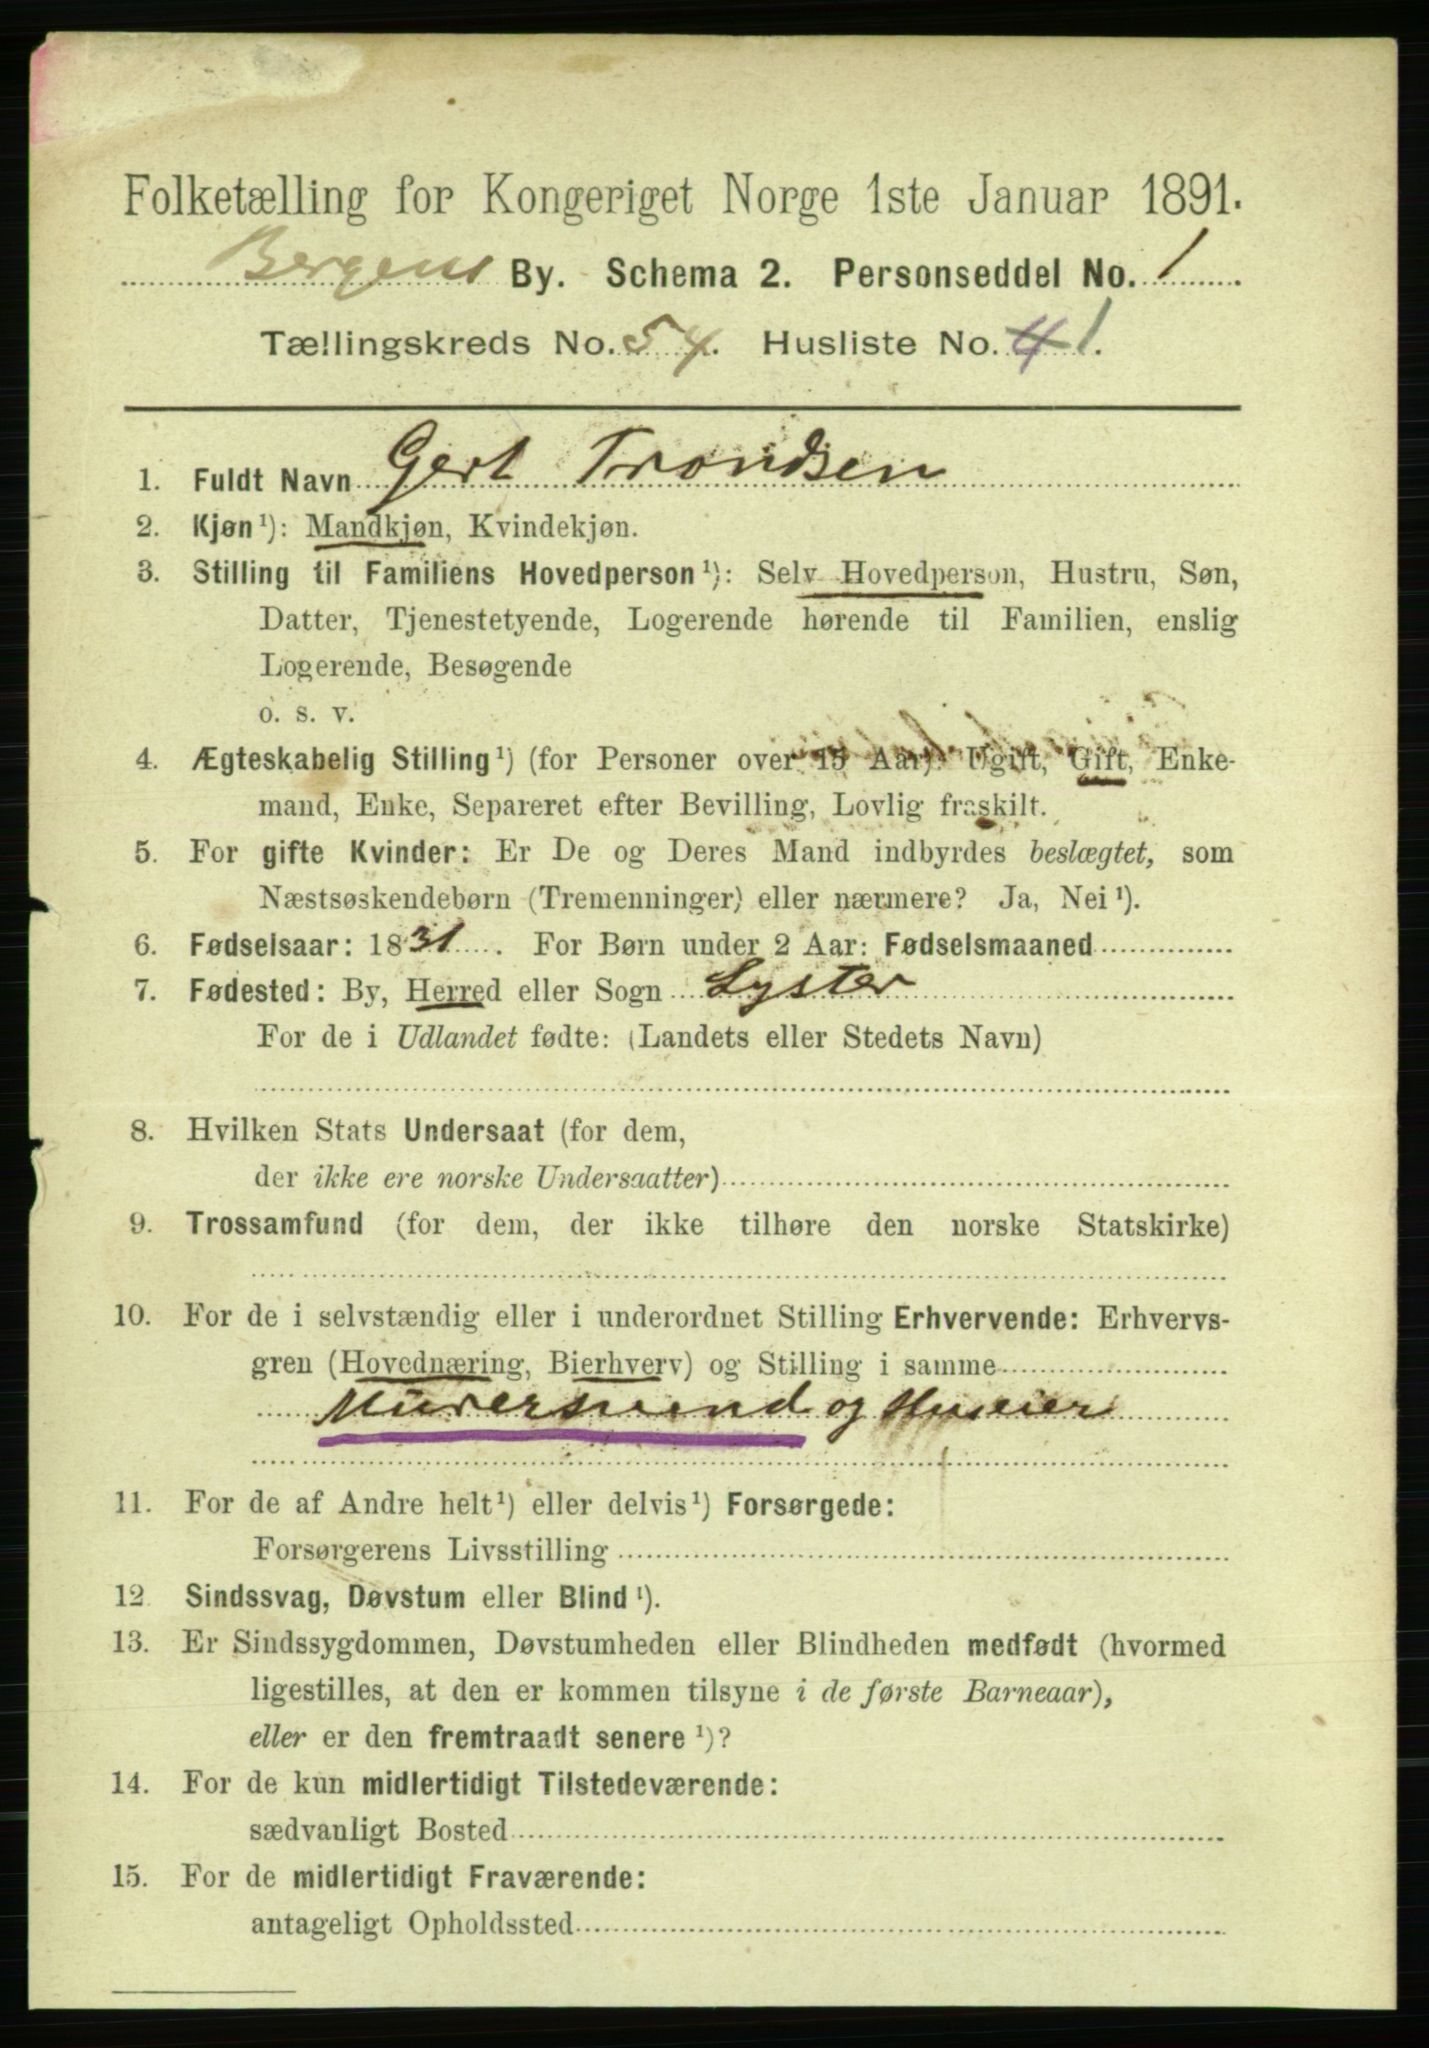 Folketælling for Kongeriget Norge 1ste Januar 1891.
Bergens By. Schema 2. Personseddel No. 1
Tællingskreds No. 54. Husliste No. 41.
1. Fuldt Navn Gert Trondsen
2. Kjøn¹): Mandkjøn, Kvindekjøn.
3. Stilling til Familiens Hovedperson¹): Selv Hovedperson, Hustru, Søn,
Datter, Tjenestetyende, Logerende hørende til Familien, enslig
Logerende, Besøgende
o. s. v.
4. Ægteskabelig Stilling¹) (for Personer over 15 Aar): Ugift, Gift, Enke-
mand, Enke, Separeret efter Bevilling, Lovlig fraskilt.
5. For gifte Kvinder: Er De og Deres Mand indbyrdes beslægtet, som
Næstsøskendebørn (Tremenninger) eller nærmere? Ja, Nei¹).
6. Fødselsaar: 1831. For Børn under 2 Aar: Fødselsmaaned
7. Fødested: By, Herred eller Sogn Lyster
For de i Udlandet fødte: (Landets eller Stedets Navn)
8. Hvilken Stats Undersaat (for dem,
der ikke ere norske Undersaatter)
9. Trossamfund (for dem, der ikke tilhøre den norske Statskirke)
10. For de i selvstændig eller i underordnet Stilling Erhvervende: Erhvervs-
gren (Hovednæring, Bierhverv) og Stilling i samme
Murersvend og Huseier
11. For de af Andre helt¹) eller delvis¹) Forsørgede:
Forsørgerens Livsstilling
12 Sindssvag, Døvstum eller Blind¹).
13. Er Sindssygdommen, Døvstumheden eller Blindheden medfødt (hvormed
ligestilles, at den er kommen tilsyne i de første Barneaar),
eller er den fremtraadt senere¹)?
14. For de kun midlertidigt Tilstedeværende:
sædvanligt Bosted
15. For de midlertidigt Fraværende:
antageligt Opholdssted